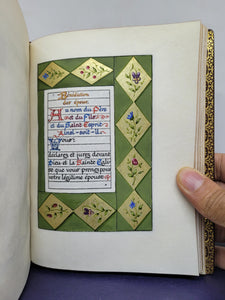 Bénédiction
des époux.
Au nom du Père
et du Fils
et du Saint Esprit
Ainsi soit-il
Vous
déclarez et jurez devant
Dieu et la Sainte Église
que vous prenez pour
votre légitime épouse